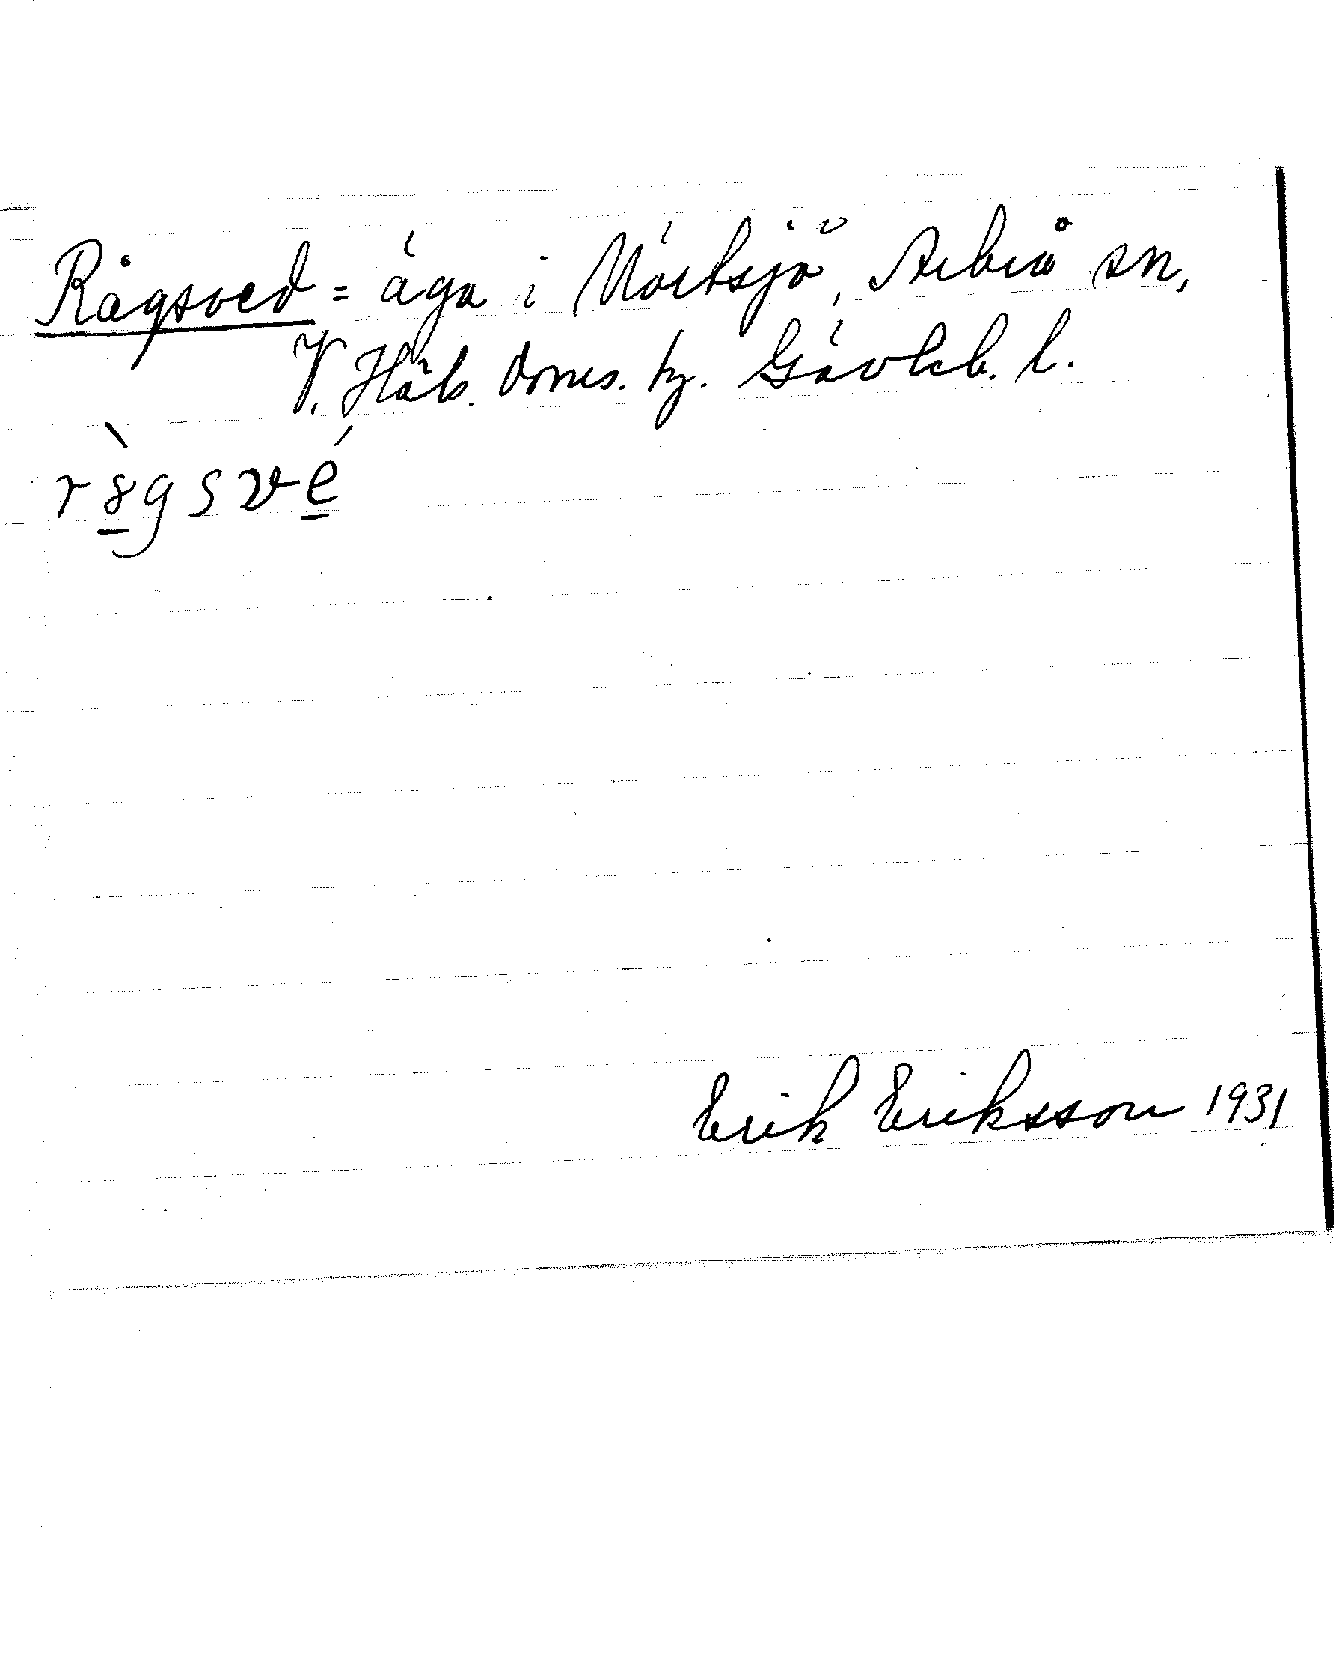 Rågsved = äga i Mörtsjö, Arbrå sn,
V. Häls. doms. hz. Gävleb. l.
rògsvé
Erik Eriksson 1931